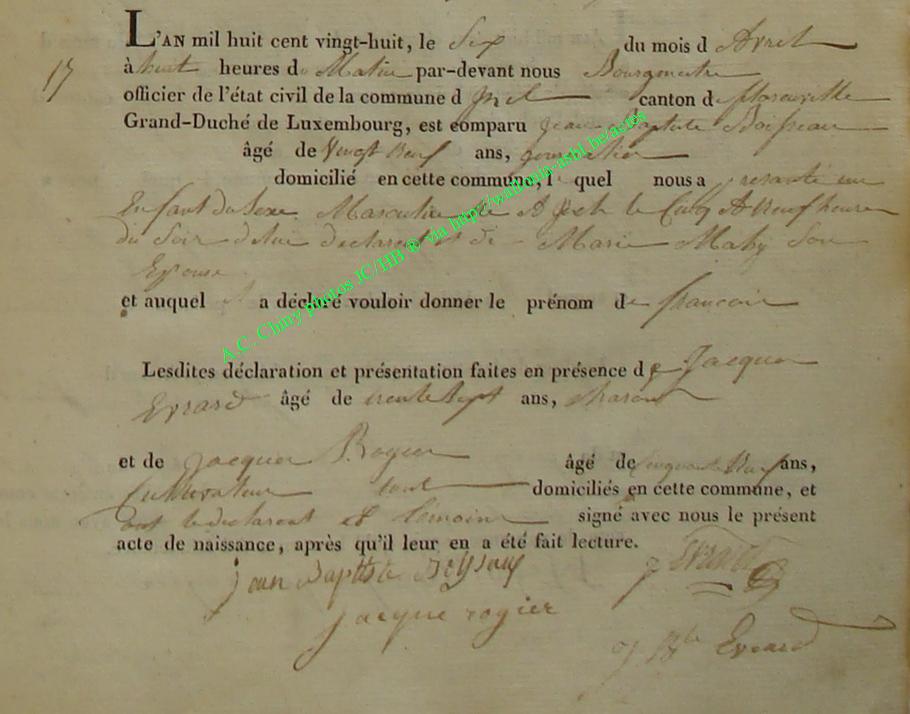 L'AN mil huit cent vingt-huit, le Six du mois d Avril
17
à huit heures du Matin par-devant nous Bourgmestre
officier de l'état civil de la commune d canton de florenville
Grand-Duché de Luxembourg, est comparu jean Baptiste Boisseau
âgé de vingt neuf ans, journalier
domicilié en cette commune, l quel nous a presanté un
Enfant du Sexe Masculin né A le Cinq A neuf heure
du Soir de lui declarent et de Marie Mahy Son
Epouse
et auquel il a déclaré vouloir donner le prénom de francois
Lesdites déclaration et présentation faites en présence de Jacques
Evrard âgé de trente Sept ans,
et de jacques Rogier âgé de Cinquante Neuf ans,
Cultivateur tout domiciliés en cette commune, et
ont le declarent et temoins signé avec nous le présent
acte de naissance, après qu'il leur en a été fait lecture.
jean Baptiste j Evrard
jacque rogier
j Bte Evrard
A.C. Chiny photos JC/HB ® via http://wallonia-asbl.be/actes